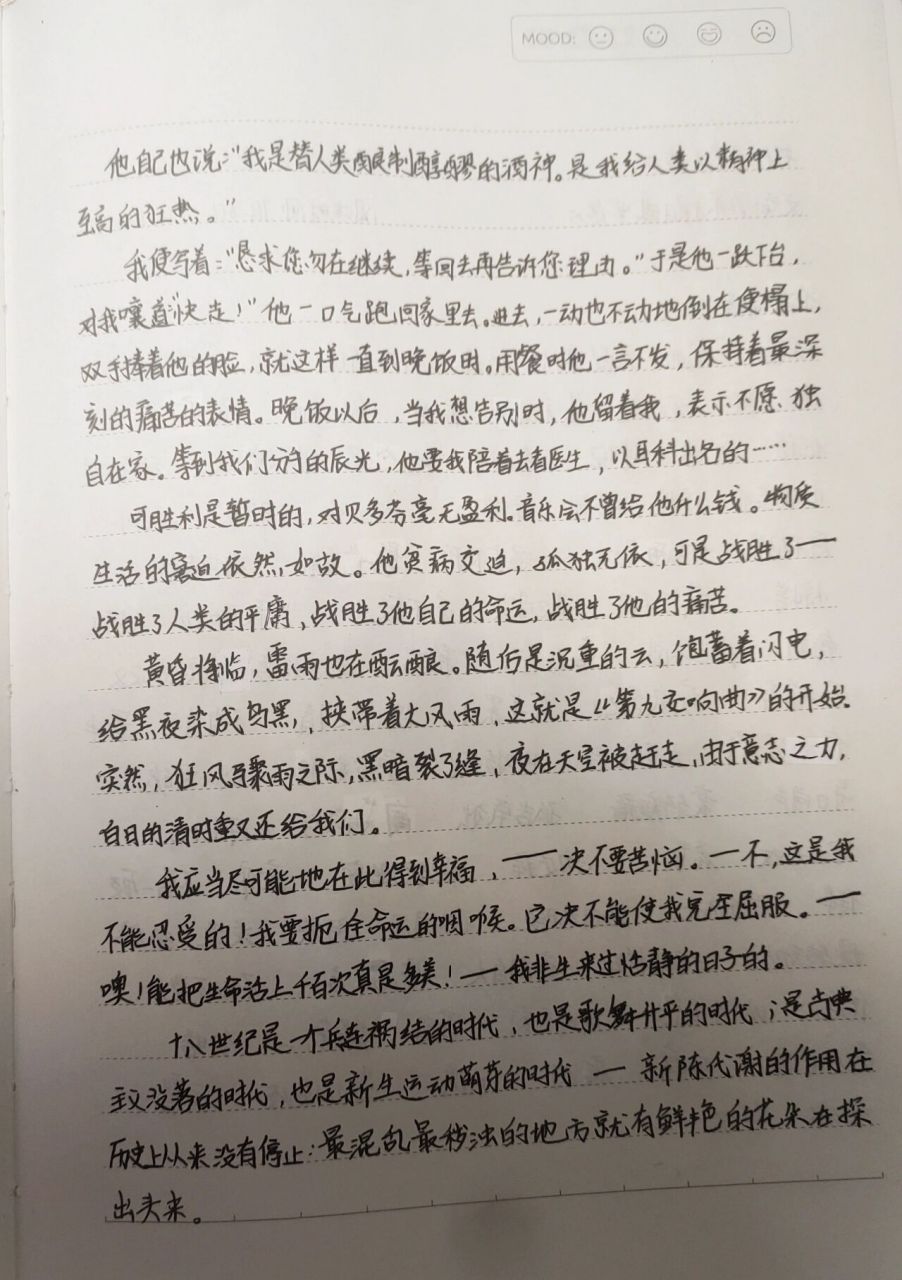 MOOD:
他自己也说:"我是替人类酿制醇醪的酒神。是我给人类以精神上
至高的狂热。"
我便写着:"恳求您勿在继续,等回去再告诉您理由。"于是他一跃下台,
对我嚷道"快走!"他一口气跑回家里去。进去,一动也不动地倒在便榻上,
双手捧着他的脸,就这样一直到晚饭时。用餐时他一言不发,保持着最深
刻的痛苦的表情。晚饭以后,当我想告别时,他留着我,表示不愿独
自在家。等到我们分手的辰光,他要我陪着去看医生,以耳科出名的……
可胜利是暂时的,对贝多芬毫无盈利。音乐会不曾给他什么钱。物质
生活的窘迫依然如故。他贫病交迫,孤独无依,可是战胜了——
战胜了人类的平庸,战胜了他自己的命运,战胜了他的痛苦。
黄昏将临,雷雨也在酝酿。随后是沉重的云,饱蓄着闪电,
给黑夜染成乌黑,挟带着大风雨,这就是《第九交响曲》的开始。
突然,狂风与骤雨之际,黑暗裂了缝,夜在天空被赶走,由于意志之力,
白日的清明重又还给我们。
我应当尽可能地在此得到幸福,——决不要苦恼。—不,这是我
不能忍受的!我要扼住命运的咽喉。它决不能使我完全屈服。—
噢!能把生命活上千百次真是多美!—我非生来过恬静的日子的。
十八世纪是一个兵连祸结的时代,也是歌舞升平的时代;是古典
主义没落的时代,也是新生运动萌芽的时代—新陈代谢的作用在
历史上从来没有停止:最混乱最秽浊的地方就有鲜艳的花朵在探
出头来。